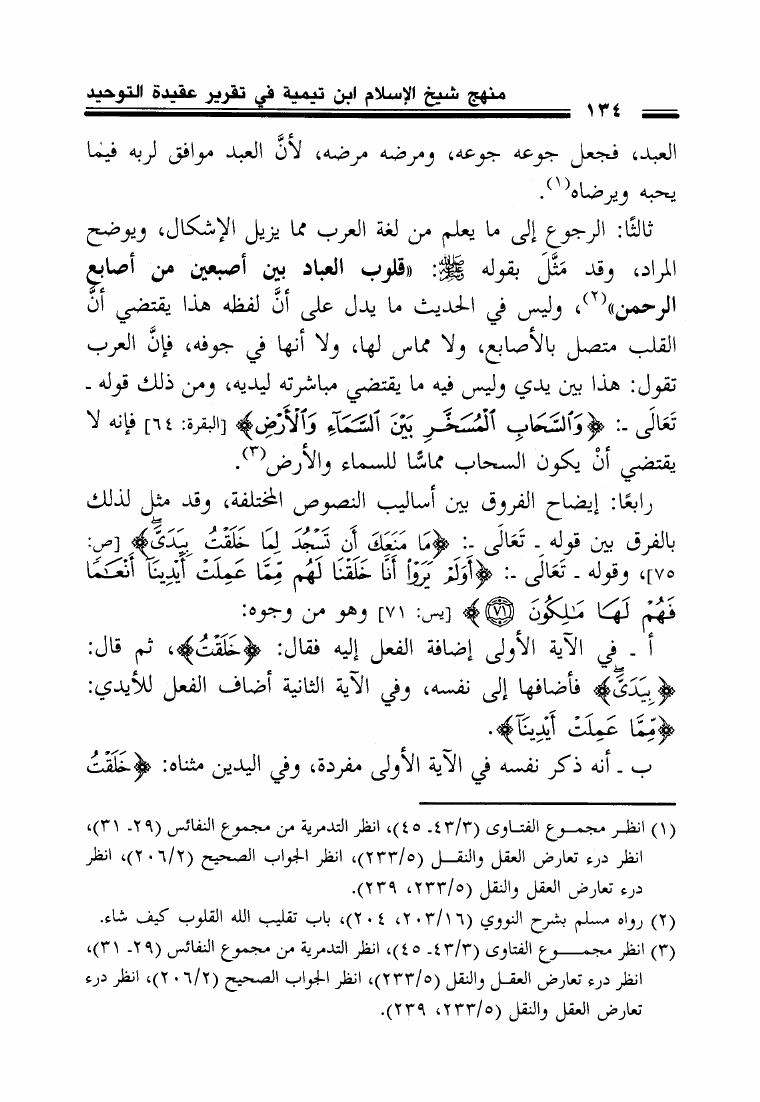 ١٣٤ منهج شيخ الإسلام ابن تيمية في تقرير عقيدة التوحيد
العبد، فجعل جوعه جوعه، ومرضه مرضه، لأنَّ العبد موافق لربه فيما
يحبه ويرضاه(١).
ثالثًا: الرجوع إلى ما يعلم من لغة العرب مما يزيل الإشكال، ويوضح
المراد، وقد مَثَّلَ بقوله ﷺ: «قلوب العباد بين أصبعين من أصابع
الرحمن»(٢)، وليس في الحديث ما يدل على أنَّ لفظه هذا يقتضي أنَّ
القلب متصل بالأصابع، ولا مماس لها، ولا أنها في جوفه، فإنَّ العرب
تقول: هذا بين يدي وليس فيه ما يقتضي مباشرته ليديه، ومن ذلك قوله ـ
تَعَالَى ـ: ﴿وَٱلسَّحَابِ ٱلْمُسَخَّرِ بَيْنَ ٱلسَّمَآءِ وَٱلْأَرْضِ﴾ [البقرة: ٦٤] فإنه لا
يقتضي أنْ يكون السحاب مماسًّا للسماء والأرض(٣).
رابعًا: إيضاح الفروق بين أساليب النصوص المختلفة، وقد مثل لذلك
بالفرق بين قوله ـ تَعَالَى ـ: ﴿مَا مَنَعَكَ أَن تَسْجُدَ لِمَا خَلَقْتُ بِيَدَيَّۖ﴾ [ص:
٧٥]، وقوله ـ تَعَالَى ـ: ﴿أَوَلَمْ يَرَوْا۟ أَنَّا خَلَقْنَا لَهُم مِّمَّا عَمِلَتْ أَيْدِينَآ أَنْعَـٰمًا
فَهُمْ لَهَا مَـٰلِكُونَ ٧١﴾ [يس: ٧١] وهو من وجوه:
أ ـ في الآية الأولى إضافة الفعل إليه فقال: ﴿خَلَقْتُ﴾، ثم قال:
﴿بِيَدَيَّۖ﴾ فأضافها إلى نفسه، وفي الآية الثانية أضاف الفعل للأيدي:
﴿مِّمَّا عَمِلَتْ أَيْدِينَآ﴾.
ب ـ أنه ذكر نفسه في الآية الأولى مفردة، وفي اليدين مثناه: ﴿خَلَقْتُ
(١) انظر مجموع الفتاوى (٤٣/٣ـ ٤٥)، انظر التدمرية من مجموع النفائس (٢٩ـ ٣١)،
انظر درء تعارض العقل والنقل (٢٣٣/٥)، انظر الجواب الصحيح (٢٠٦/٢)، انظر
درء تعارض العقل والنقل (٢٣٣/٥، ٢٣٩).
(٢) رواه مسلم بشرح النووي (٢٠٣/١٦، ٢٠٤)، باب تقليب الله القلوب كيف شاء.
(٣) انظر مجموع الفتاوى (٤٣/٣ـ ٤٥)، انظر التدمرية من مجموع النفائس (٢٩ـ ٣١)،
انظر درء تعارض العقل والنقل (٢٣٣/٥)، انظر الجواب الصحيح (٢٠٦/٢)، انظر درء
تعارض العقل والنقل (٢٣٣/٥، ٢٣٩).